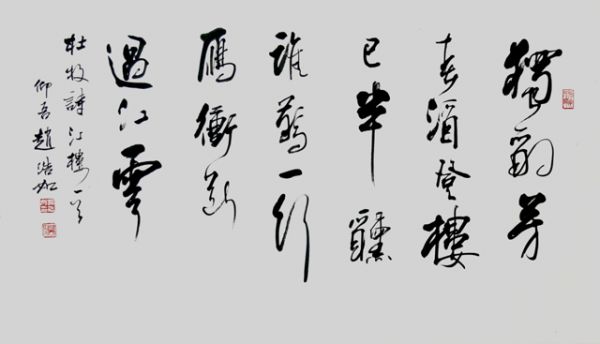 獨酌芳
春酒登樓
已半醺
誰驚一行
鴈衝斷
過江雲
杜牧詩江樓一首
仰吾趙浩如